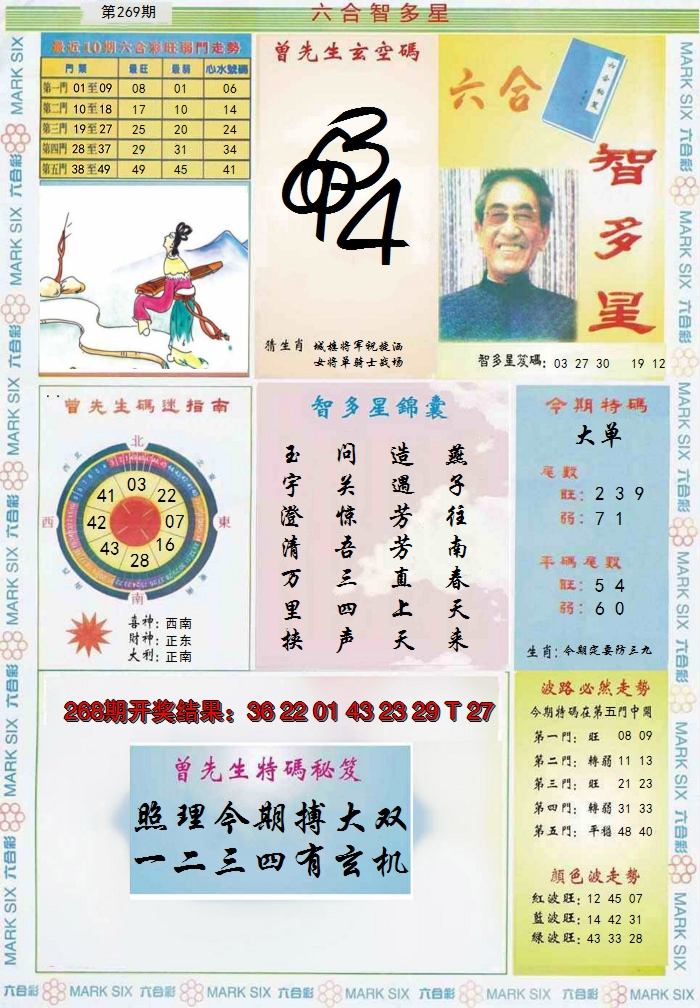 第269期
六合智多星
最近10期六合彩旺弱門走勢
門類 最旺 最弱 心水號碼
第一門 01至09 08 01 06
第二門 10至18 17 10 14
第三門 19至27 25 20 24
第四門 28至37 29 31 34
第五門 38至49 49 45 41
曾先生玄空碼
猜生肖 城樵将军祝掟洒
女将单骑士战场
六合
智多星
智多星笈碼: 03 27 30 19 12
曾先生碼迷指南
北
西
東
南
03
22
07
16
28
43
42
41
喜神: 西南
財神: 正东
大利: 正南
智多星錦囊
燕子往南春天来
造遇芳芳直上天
问关惊吾三四声
玉宇澄清万里挟
今期特碼
大单
尾數
旺: 2 3 9
弱: 7 1
平碼尾數
旺: 5 4
弱: 6 0
生肖: 今期定要防三九
268期开奖结果: 36 22 01 43 23 29 T 27
曾先生特碼秘笈
照理今期搏大双
一二三四有玄机
波路必然走勢
今期特碼在第五門中開
第一門: 旺 08 09
第二門: 轉弱 11 13
第三門: 旺 21 23
第四門: 轉弱 31 33
第五門: 平穩 48 40
顏色波走勢
紅波旺: 12 45 07
藍波旺: 14 42 31
綠波旺: 43 33 28
MARK SIX 六合彩